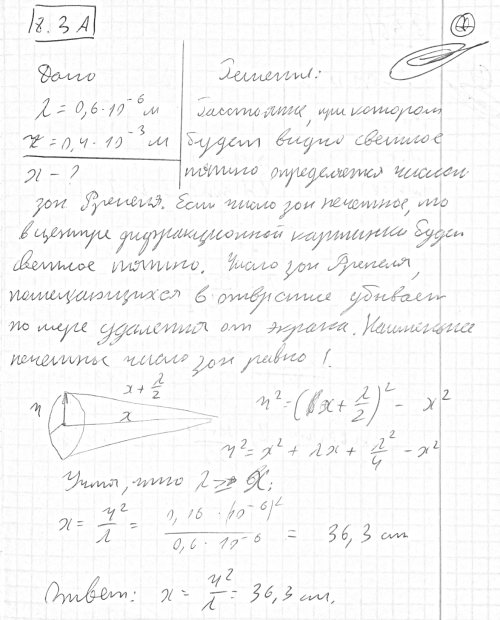 z. 3 A
Дано
λ = 0,6·10⁻⁶ м
r = 0,4·10⁻³ м
x – ?
Решения:
Расстояние, при котором
будет видно светлое
пятно определяется числом
зон Френеля. Если число зон нечетное, то
в центре дифракционной картинки будет
светлое пятно. Число зон Френеля,
помещающихся в отверстие убывает
по мере удаления от экрана. Наименьшее
нечетных число зон равно 1.
x + λ/2
r
x
r² = (x + λ/2)² – x²
r² = x² + λx + λ²/4 – x²
Учтя, что λ
x = r²/λ = 0,16·(10⁻⁶)²/0,6·10⁻⁶ = 36,3 см
Ответ: x = r²/λ = 36,3 см.